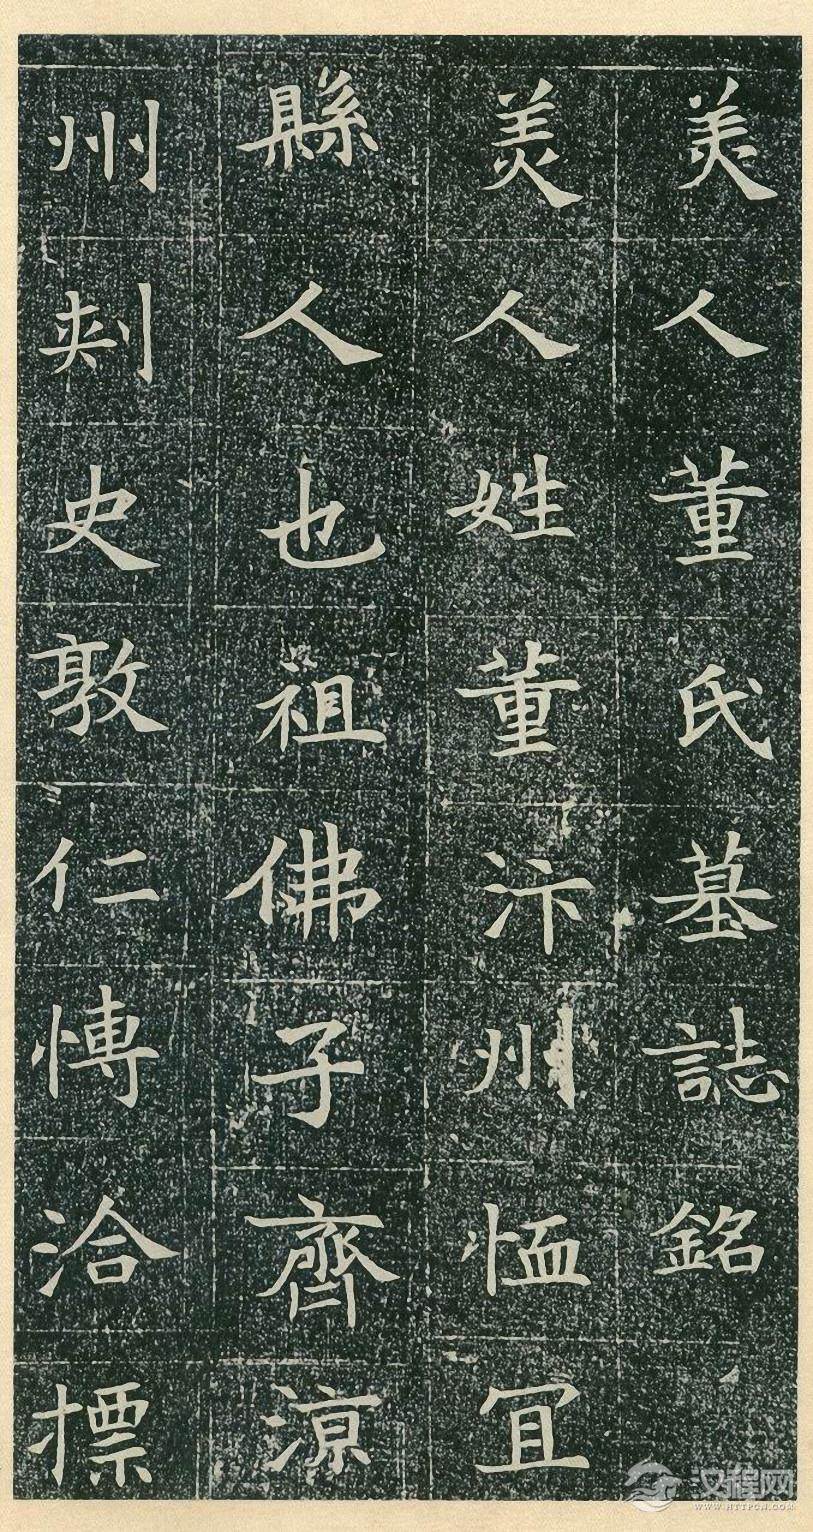 美人董氏墓誌銘
美人姓董汴州恤冝
縣人也祖佛子齊涼
州刺史敦仁愽洽摽
汉程网
WWW.HTTPCN.COM